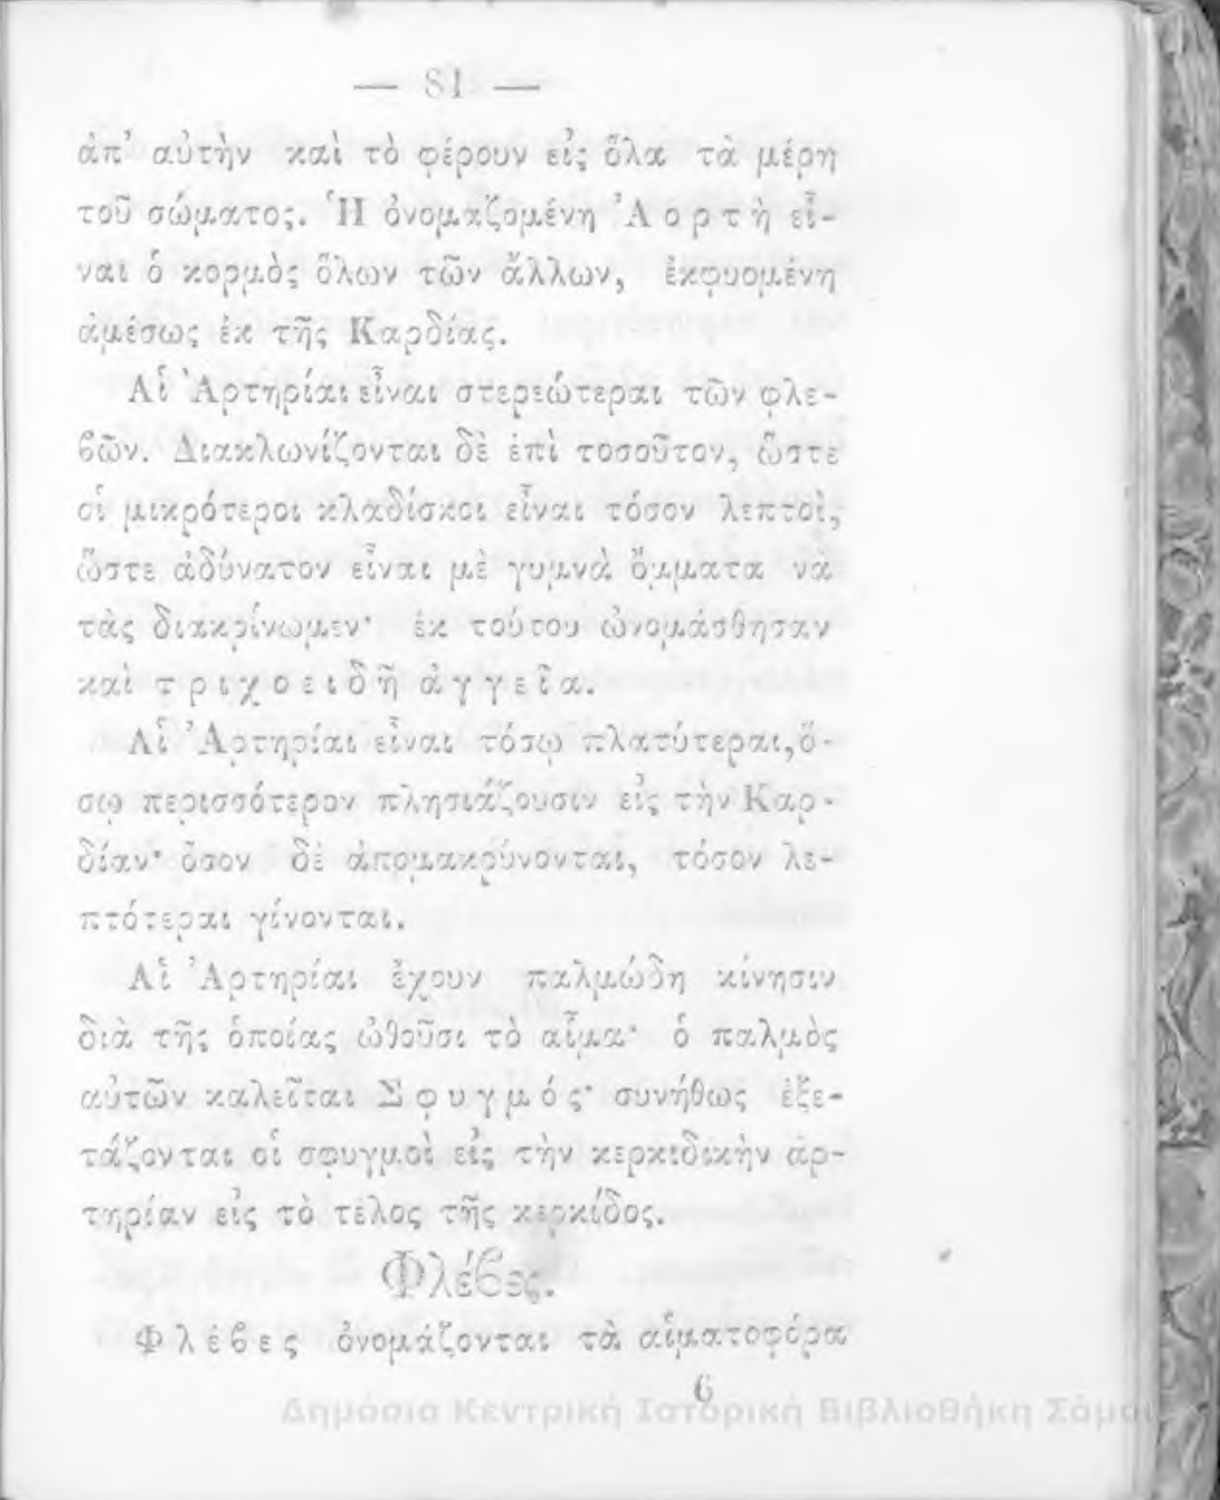 — 81 —
ἀπ’ αὐτὴν καὶ τὸ φέρουν εἰς ὅλα τὰ μέρη
τοῦ σώματος. Ἡ ὀνομαζομένη Ἀορτὴ εἶ-
ναι ὁ κορμὸς ὅλων τῶν ἄλλων, ἐκφυομένη
ἀμέσως ἐκ τῆς Καρδίας.
Αἱ Ἀρτηρίαι εἶναι στερεώτεραι τῶν φλε-
ϐῶν. Διακλωνίζονται δὲ ἐπὶ τοσοῦτον, ὥστε
οἱ μικρότεροι κλαδίσκοι εἶναι τόσον λεπτοὶ,
ὥστε ἀδύνατον εἶναι μὲ γυμνὰ ὄμματα νὰ
τὰς διακρίνωμεν· ἐκ τούτου ὠνομάσθησαν
καὶ τριχοειδῆ ἀγγεῖα.
Αἱ Ἀρτηρίαι εἶναι τόσῳ πλατύτεραι, ὅ-
σῳ περισσότερον πλησιάζουσιν εἰς τὴν Καρ-
δίαν· ὅσον δὲ ἀπομακρύνονται, τόσον λε-
πτότεραι γίνονται.
Αἱ Ἀρτηρίαι ἔχουν παλμώδη κίνησιν
διὰ τῆς ὁποίας ὠθοῦσι τὸ αἷμα· ὁ παλμὸς
αὐτῶν καλεῖται Σφυγμός· συνήθως ἐξε-
τάζονται οἱ σφυγμοὶ εἰς τὴν κερκιδικὴν ἀρ-
τηρίαν εἰς τὸ τέλος τῆς κερκίδος.
Φλέϐες.
Φλέϐες ὀνομάζονται τὰ αἱματοφόρα
6
Δημόσια Κεντρική Ιστορική Βιβλιοθήκη Σάμου